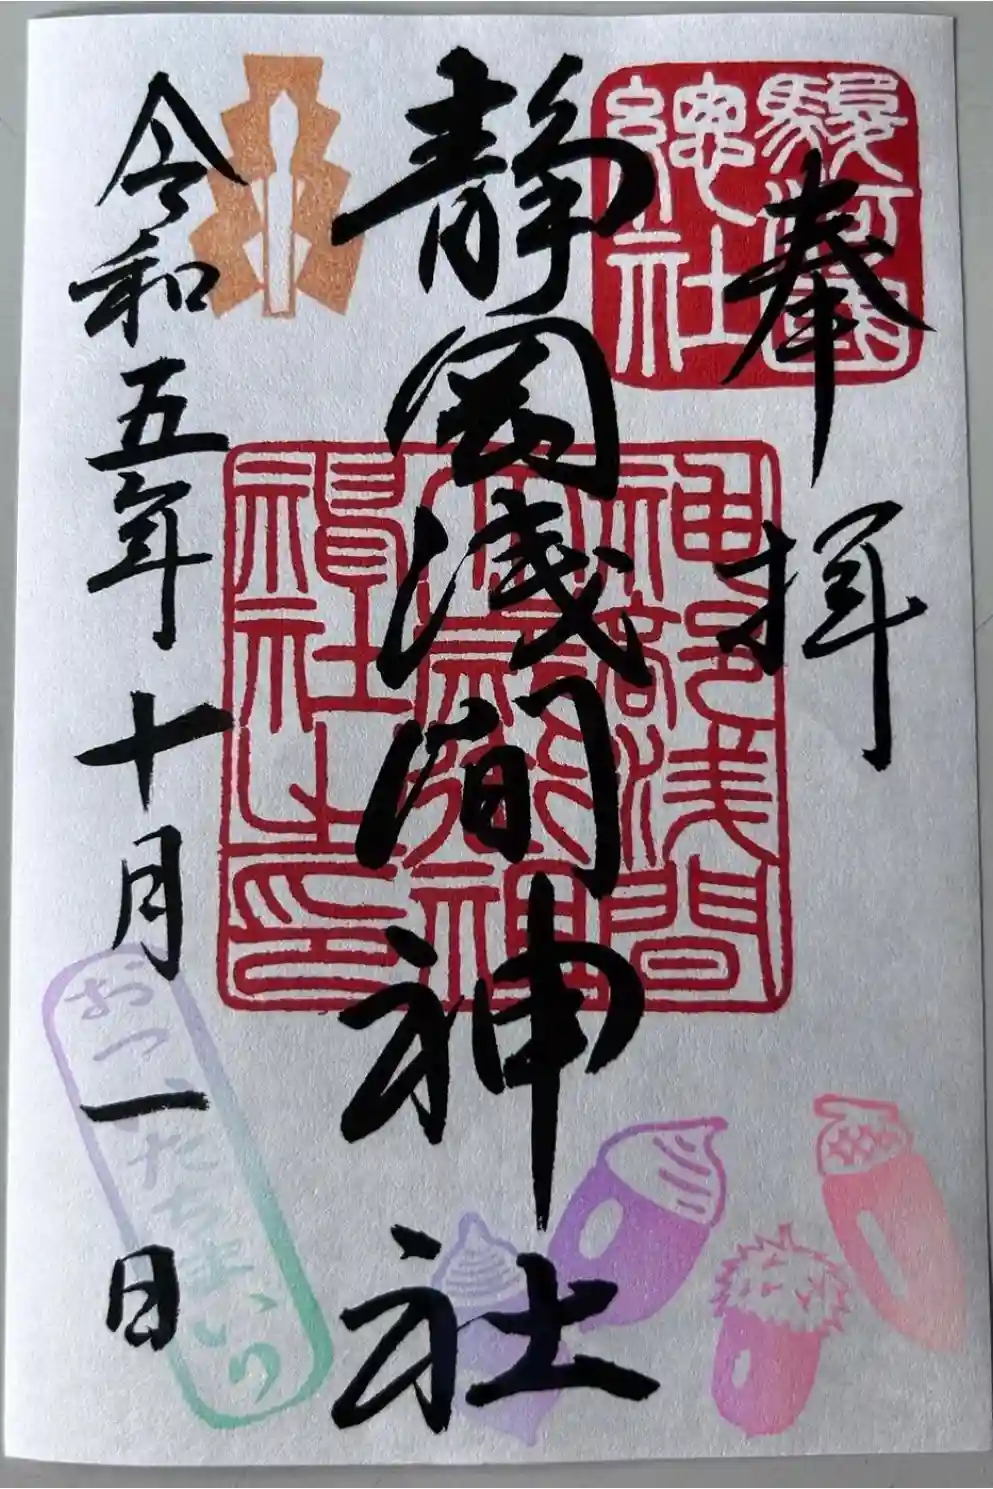 奉拝
駿河國
總社
静岡浅間神社
神部浅間
大歳御祖
神社之印
令和五年十月一日
おついたちまいり